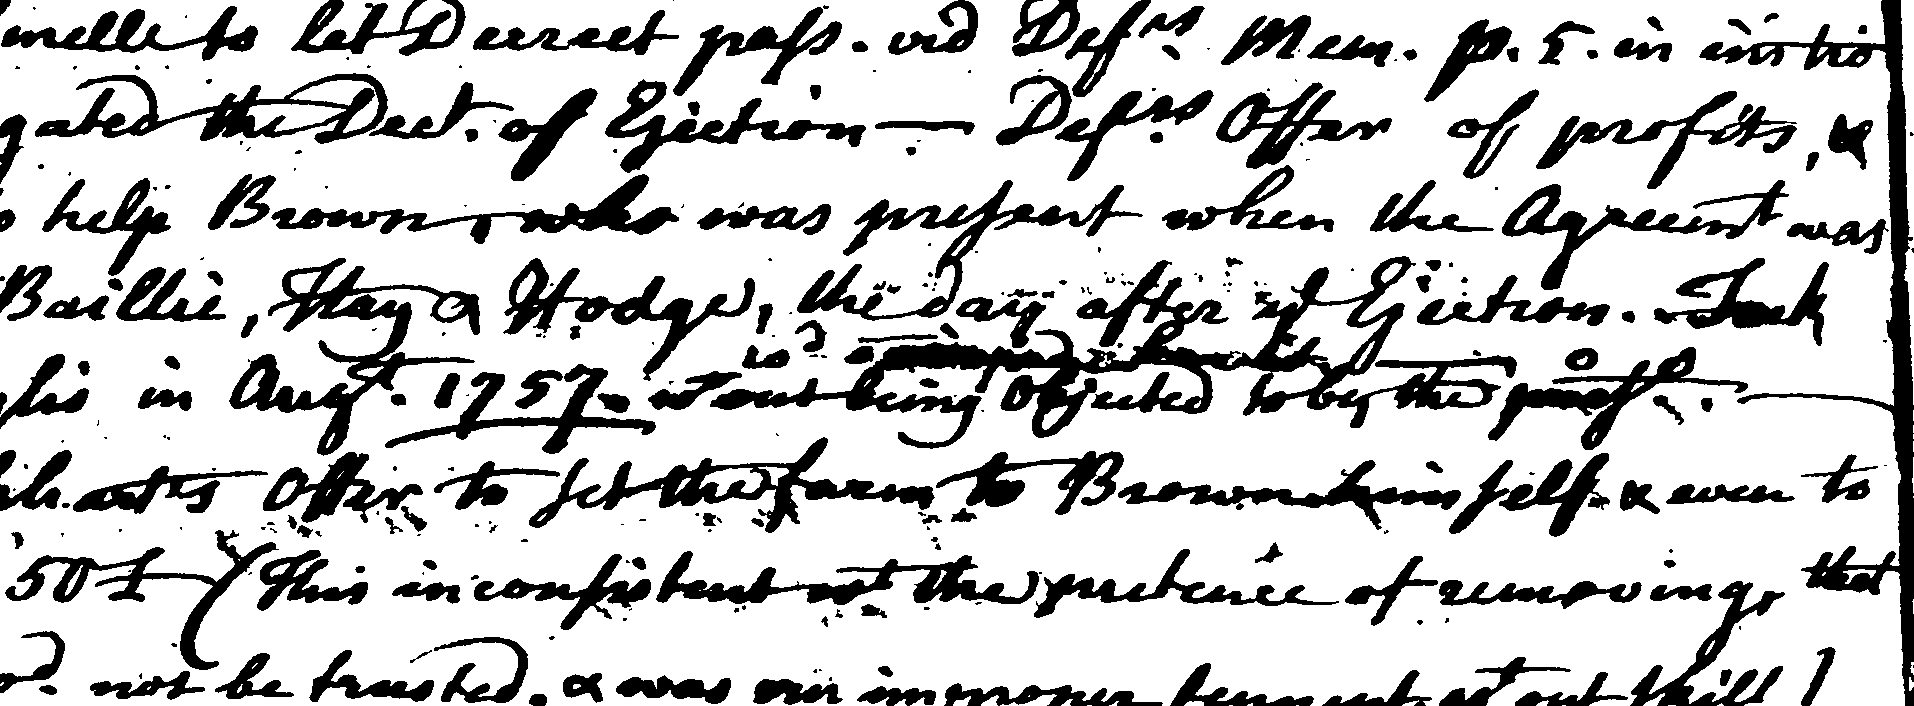 melle to let Decreet pass. vid Defrs Mem. p. 5. in
gated the Dect. of Ejection — Defrs Offer of profits, &
help Brown, who was present when the Agreemt was
Baillie, Hay & Hodge, the day after yd Ejection. Tack
in Augt. 1757. wtout being Objected to by the
Offer to set the farm to Brown himself. & even to
50£ (This inconsistent wt the pretence of removing, that
not be trusted. & was an improper tennent wtout skill)